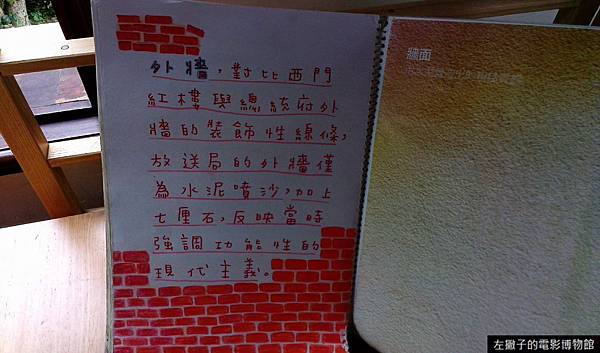 外牆，對比西門
紅樓與總統府外
牆的裝飾性線條，
放送局的外牆僅
為水泥噴沙，加上
七厘石，反映當時
強調功能性的
現代主義。
牆面
左撇子的電影博物館